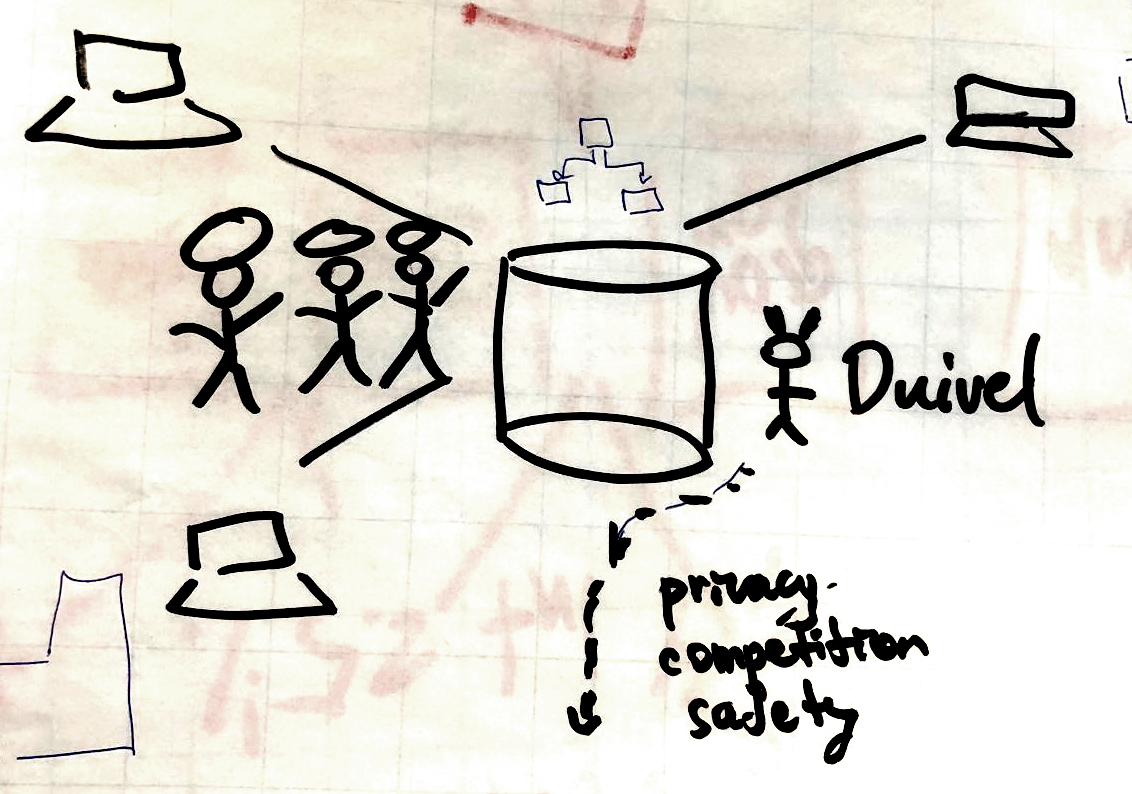 Duivel
privacy
competition
safety